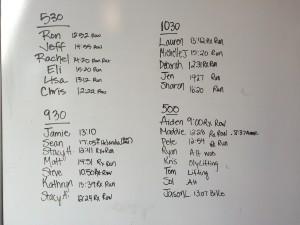 530
Ron 12:52 Run
Jeff 14:55 Run
Rachel 14:20 Run
Eli 15:20 Run
Lisa 13:12 Run
Chris 12:22 Run
930
Jamie 13:10
Sean 17:05
Stacy H. 12:41 Rx Run
Matt 14:51 Rx Run
Steve 10:50 Rx Row
Kathryn 13:39 Rx Run
Stacy A. 12:29 Rx Row
1030
Lauren 13:12 Rx Run
Michelle J 15:20 Run
Deborah 12:31 Rx Run
Jen 19:27 Run
Sharon 16:20 Run
500
Aiden 9:00 Rx Row
Maddie 12:28 Rx Row
Pete 12:54 Rx Run
Ryan Alt WOD
Kris Oly Lifting
Tom Lifting
Sol Alt
Jason L 13:07 Bike